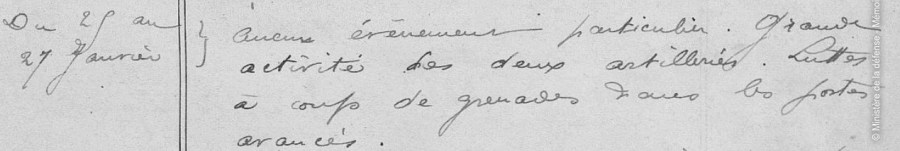 Du 25 au
27 Janvier
aucun évènement particulier. Grande
activité des deux artilleries. Luttes
à coups de grenades dans les postes
avancés.
© Ministère de la défense - Mémo